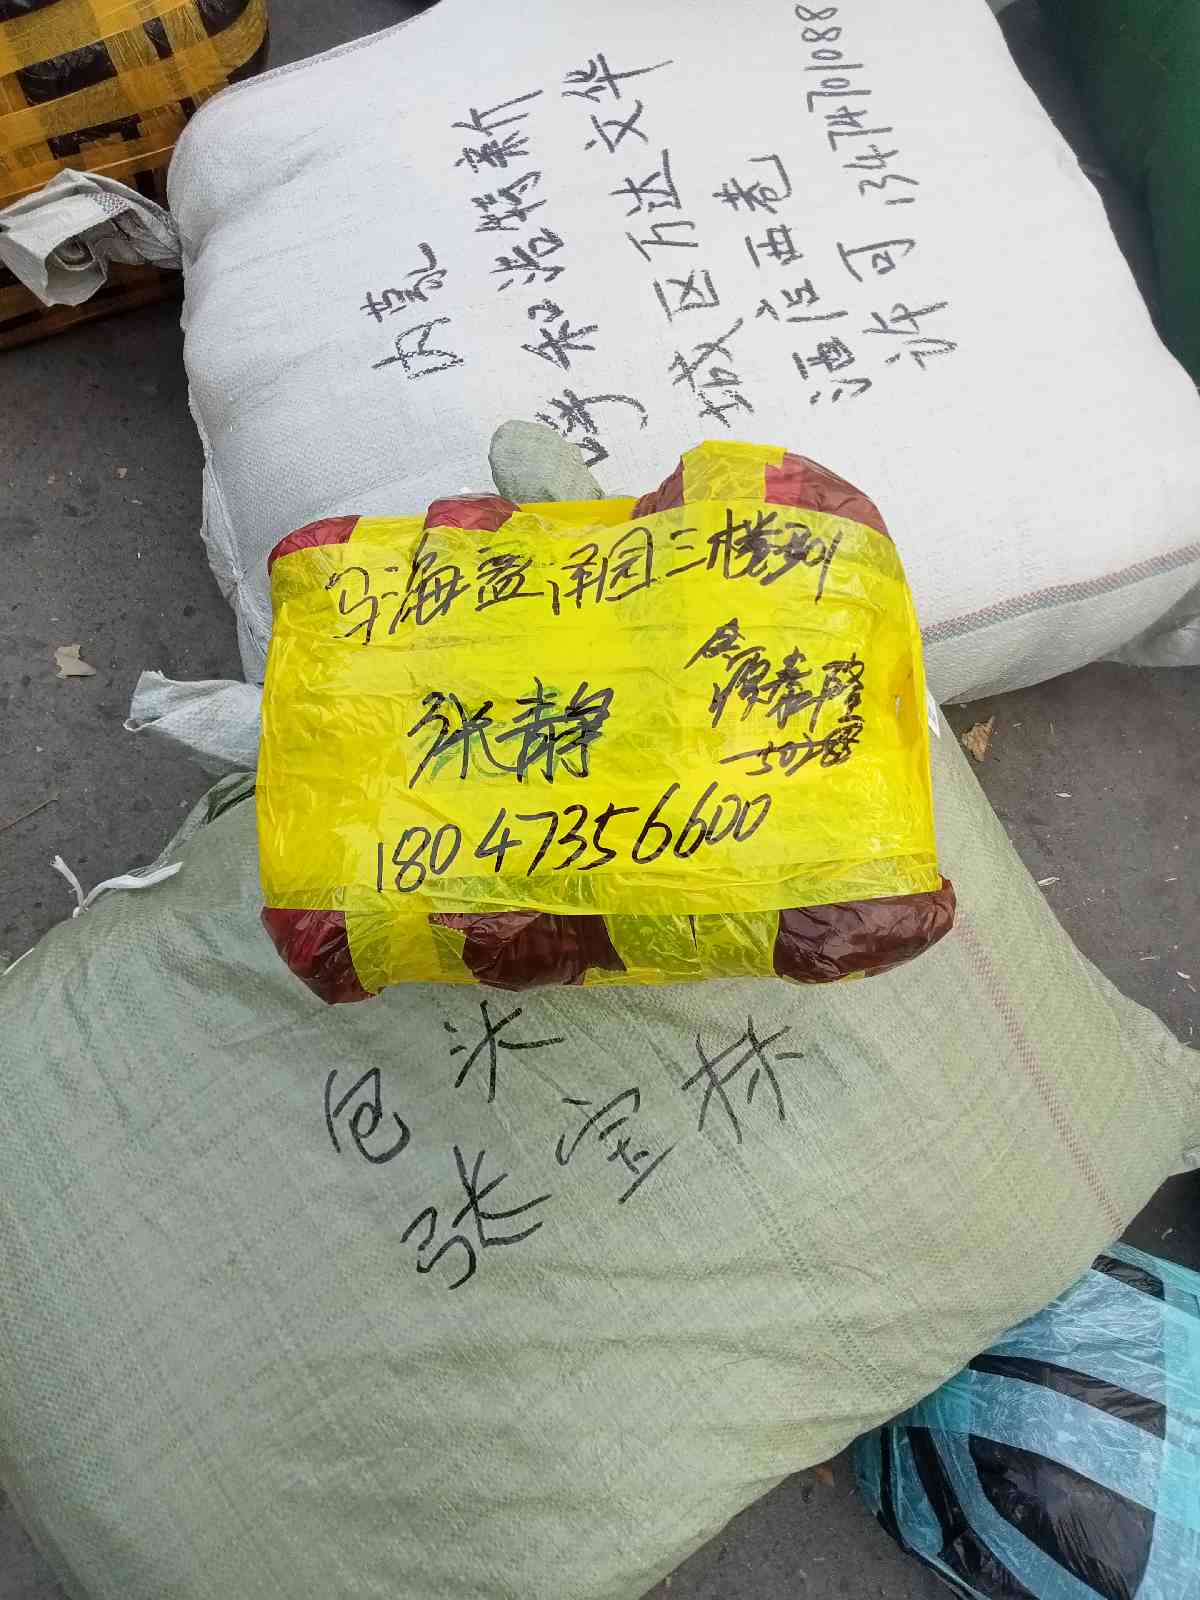 内蒙
呼和浩特新
城区万达文华
酒店西巷
许可 13474701088
乌海益泽园三楼301
张静
源鑫隆
18047356600
包米
张宝林